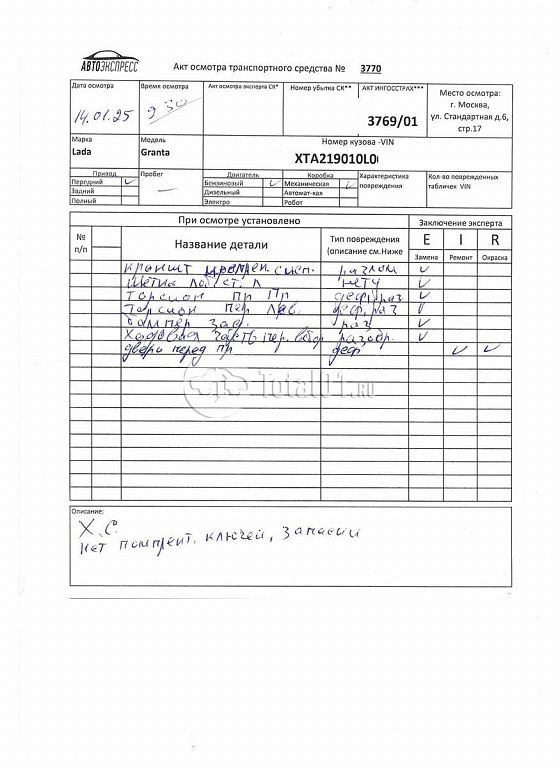 АВТОЭКСПРЕСС
Акт осмотра транспортного средства № 3770
Дата осмотра
14.01.25
Время осмотра
9 30
Акт осмотра эксперта СК*
Номер убытка СК**
АКТ ИНГОССТРАХ***
3769/01
Место осмотра:
г. Москва,
ул. Стандартная д.6,
стр.17
Марка
Lada
Модель
Granta
Номер кузова -VIN
XTA219010L0
Привод
Передний
Задний
Полный
Пробег
—
Двигатель
Бензиновый
Дизельный
Электро
Коробка
Механическая
Автомат-кая
Робот
Характеристика
повреждения
Кол-во поврежденных
табличек VIN
При осмотре установлено
Заключение эксперта
№
п/п
Название детали
Тип повреждения
(описание см.Ниже
E I R
Замена Ремонт Окраска
кроншт разлом
щетка лоб ст. л нету
Торсион пр Пр деф, раз
Торсион пер лев. деф, раз
бампер зад. раз
Ходовая часть пер. разобр.
дверь перед пр деф
Total01.ru
Описание:
Х.С.
Нет комплект. ключей, запаски